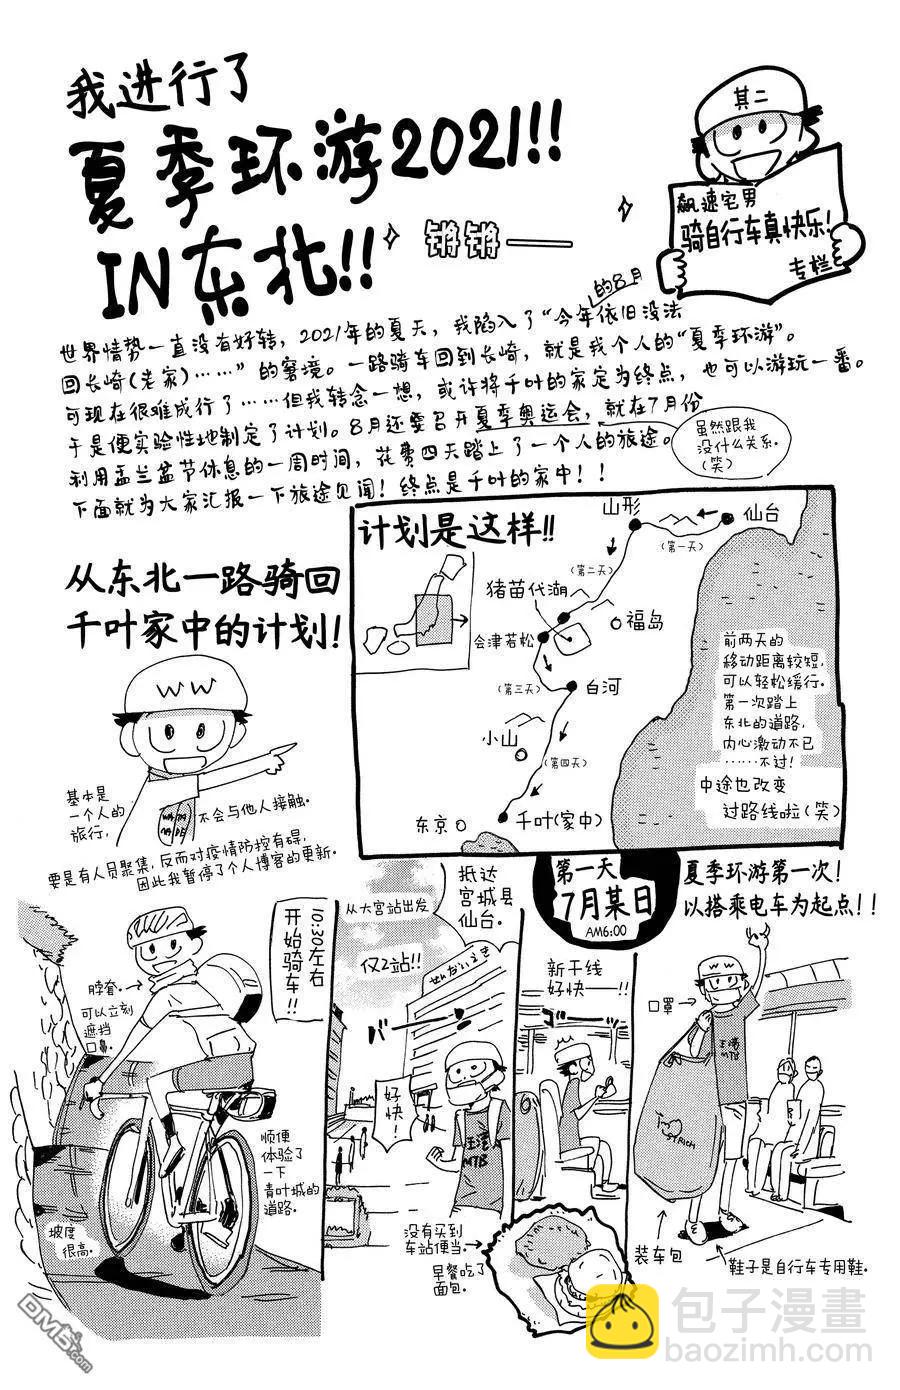 我进行了
夏季环游2021!!
IN东北!!
锵锵——
其二
飙速宅男
骑自行车真快乐!
专栏
的8月
世界情势一直没有好转，2021年的夏天，我陷入了“今年依旧没法
回长崎(老家)……”的窘境。一路骑车回到长崎，就是我个人的“夏季环游”。
可现在很难成行了……但我转念一想，或许将千叶的家定为终点，也可以游玩一番。
于是便实验性地制定了计划。8月还要召开夏季奥运会，就在7月份
利用盂兰盆节休息的一周时间，花费四天踏上了一个人的旅途。
下面就为大家汇报一下旅途见闻！终点是千叶的家中！！
虽然跟我
没什么关系.
(笑)
从东北一路骑回
千叶家中的计划!
计划是这样!!
山形
仙台
(第一天)
(第二天)
猪苗代湖
福岛
会津若松
(第三天)
白河
小山
(第四天)
东京
千叶(家中)
前两天的
移动距离较短,
可以轻松缓行.
第一次踏上
东北的道路,
内心激动不已
……不过!
中途也改变
过路线啦(笑)
WW
基本是
一个人的
旅行,
不会与他人接触.
要是有人员聚集,反而对疫情防控有碍,
因此我暂停了个人博客的更新.
第一天
7月某日
AM6:00
夏季环游第一次!
以搭乘电车为起点!!
口罩
WW
玉湾
MTB
装车包
鞋子是自行车专用鞋.
新干线
好快——!!
ゴー
抵达
宫城县
仙台.
从大宫站出发
仅2站!!
せんだいえき
バーン
好快!
玉湾
MTB
没有买到
车站便当.
早餐吃了
面包.
10:30左右
开始骑车!!
脖脊.
可以立刻
遮挡
口鼻.
顺便
体验了
一下
青叶城的
道路.
坡度
很高.
DM5.com
包子漫畫
baozimh.com